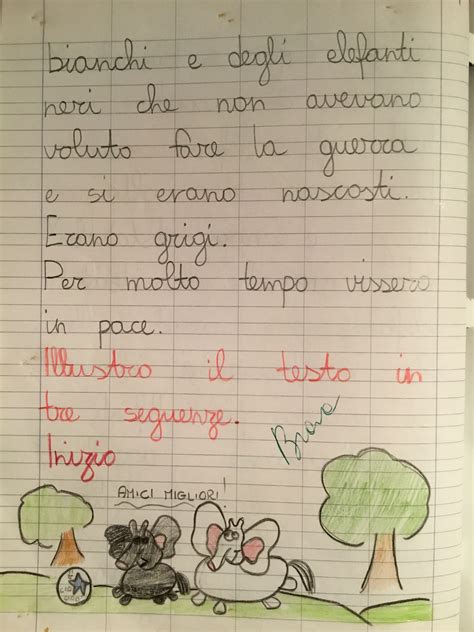 bianchi e degli elefanti
neri che non avevano
voluto fare la guerra
e si erano nascosti.
Erano grigi.
Per molto tempo vissero
in pace.
Illustro il testo in
tre sequenze.
Brava
Inizio
AMICI MIGLIORI!